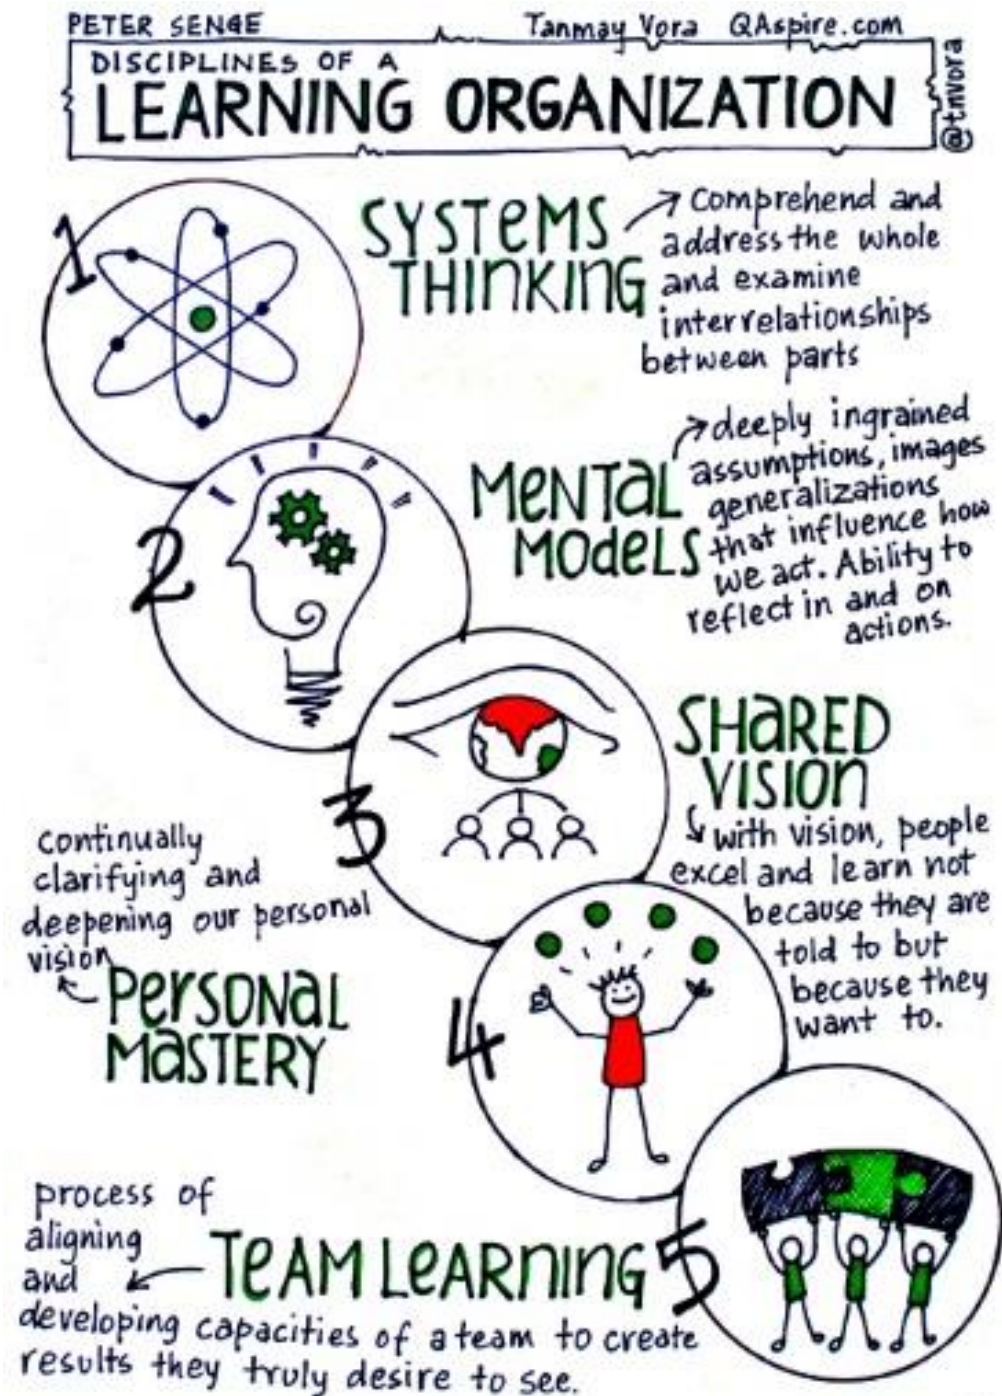 PETER SENGE
Tanmay Vora QAspire.com
@tnvora
DISCIPLINES OF A
LEARNING ORGANIZATION
1
SYSTEMS
THINKING
comprehend and
address the whole
and examine
interrelationships
between parts
2
MENTAL
MODELS
deeply ingrained
assumptions, images
generalizations
that influence how
we act. Ability to
reflect in and on
actions.
3
SHARED
VISION
with vision, people
excel and learn not
because they are
told to but
because they
want to.
4
continually
clarifying and
deepening our personal
vision
PERSONAL
MASTERY
5
TEAM LEARNING
process of
aligning
and
developing capacities of a team to create
results they truly desire to see.